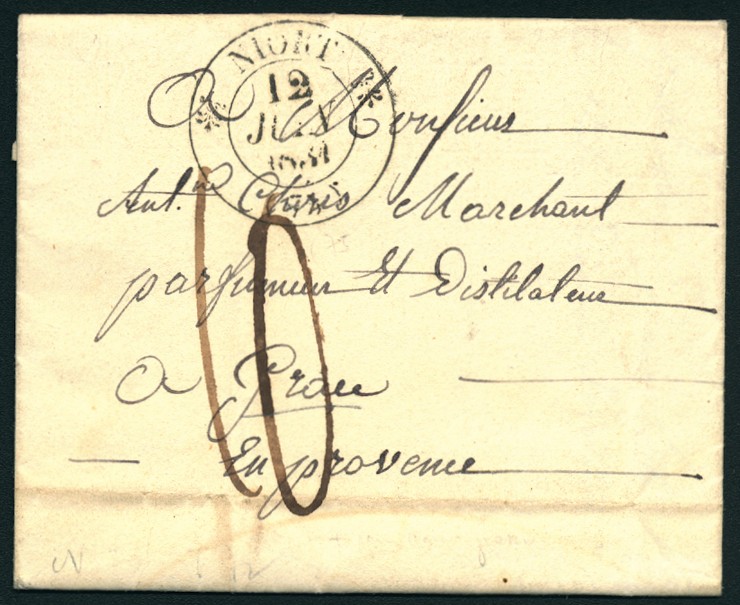 NIORT
12
JUIN
A Monsieur
Ant.ne Chiris Marchant
parfumeur Et Distilateur
10
a Grasse
En provence
N